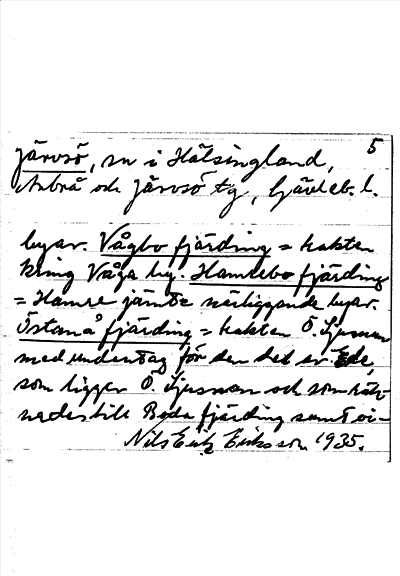 5
Järvsö, sn i Hälsingland,
Arbrå och Järvsö tg, Gävleb. l.
byar. Vågbo fjärding = trakten
kring Våga by. Hamrebo fjärding
= Hamre jämte närliggande byar.
Östanå fjärding = trakten Ö. Ljusnan
med undantag för den del av Ede,
som ligger Ö. Ljusnan och som räk-
nades till Bodafjärding samt vi-
Nils Erik Eriksson 1935.